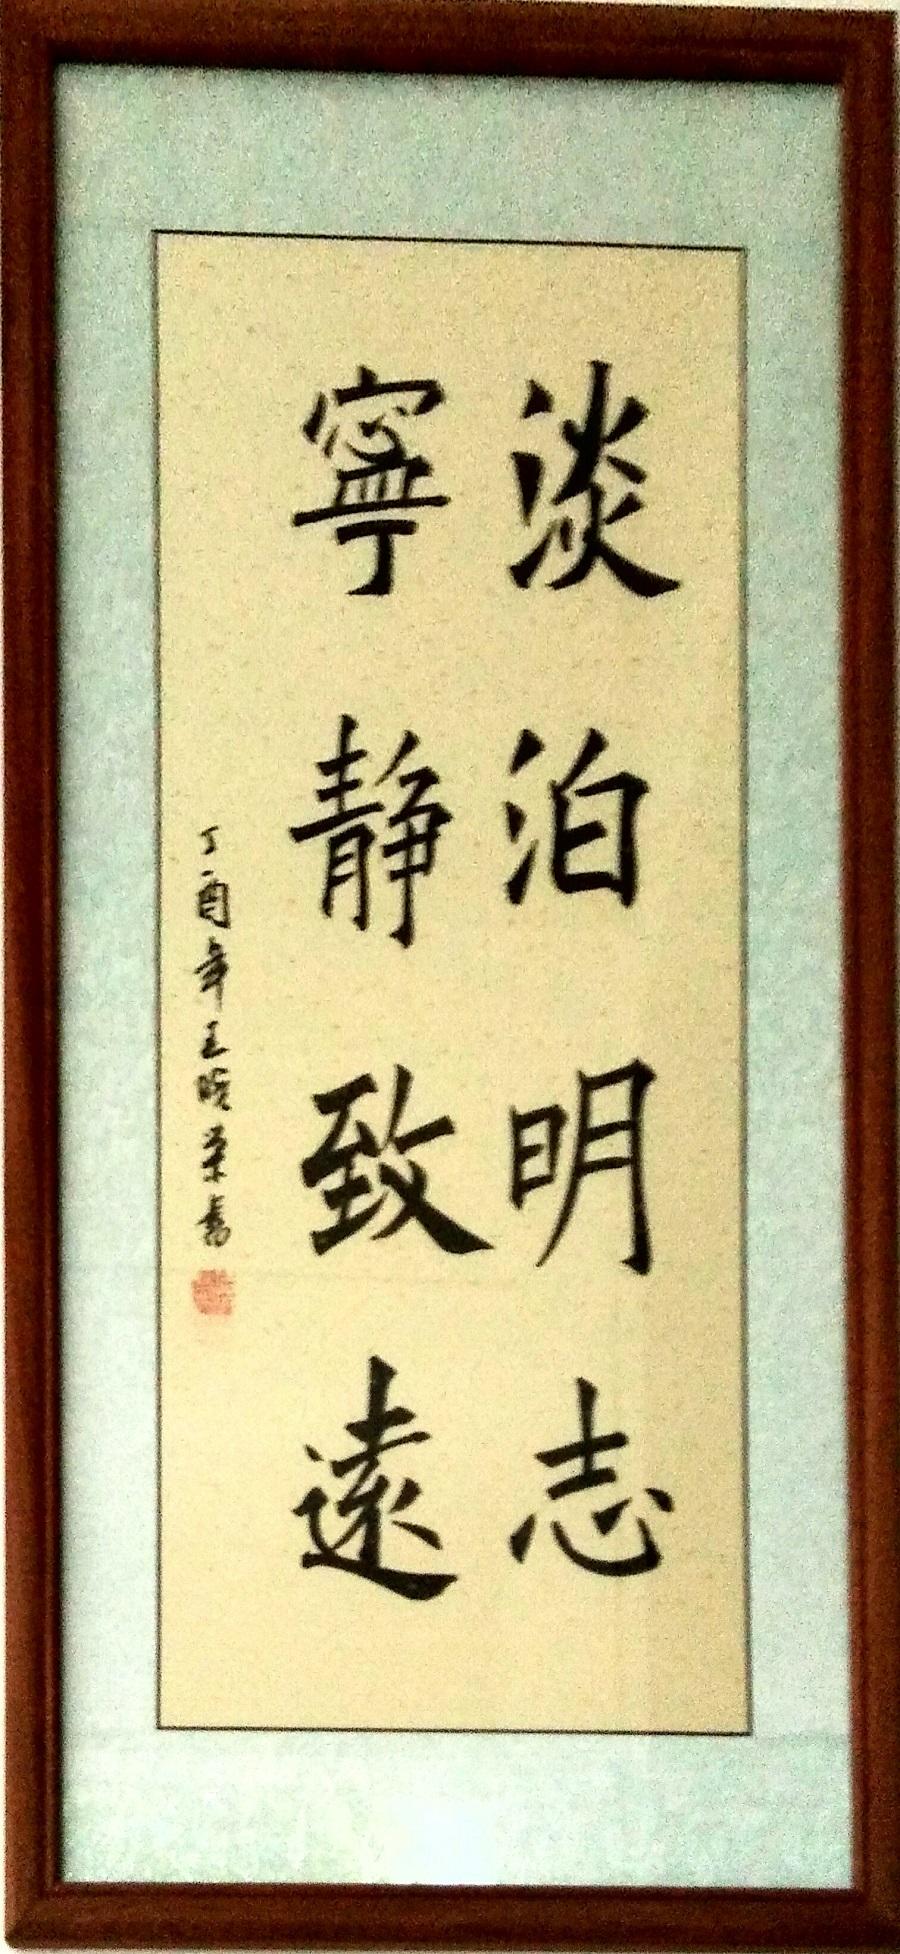 淡泊明志
寧靜致遠
丁酉年王曉榮書